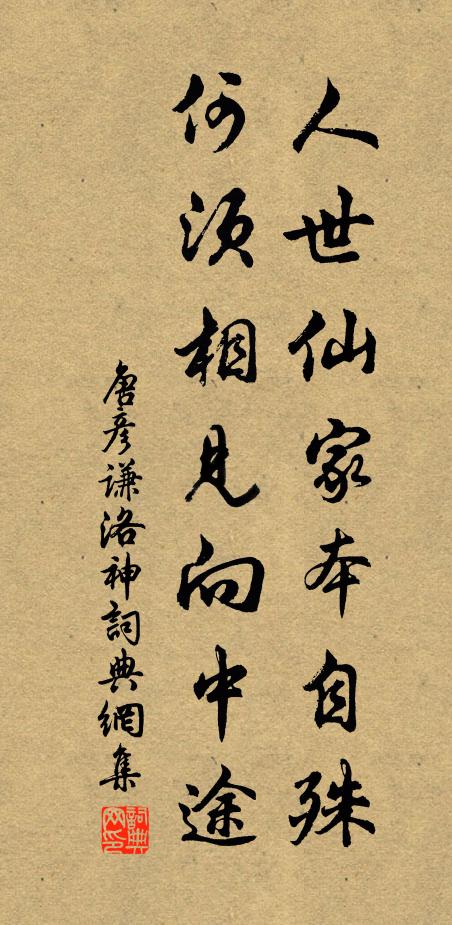 人世仙家本自殊
何須相見向中途
唐彥謙洛神詞典網集
詞典網印